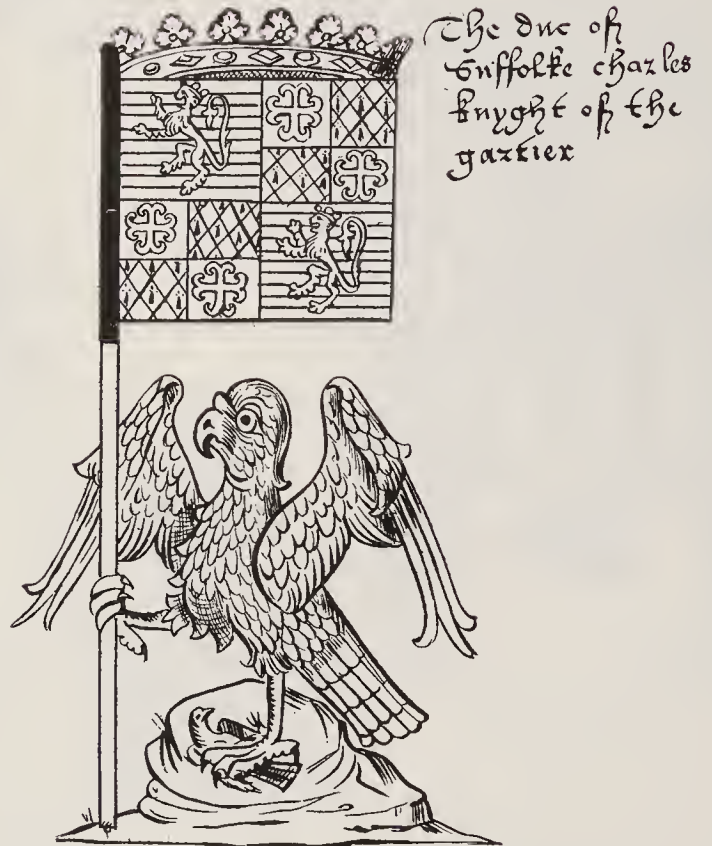 The duc of
Suffolke charles
knyght of the
gartier